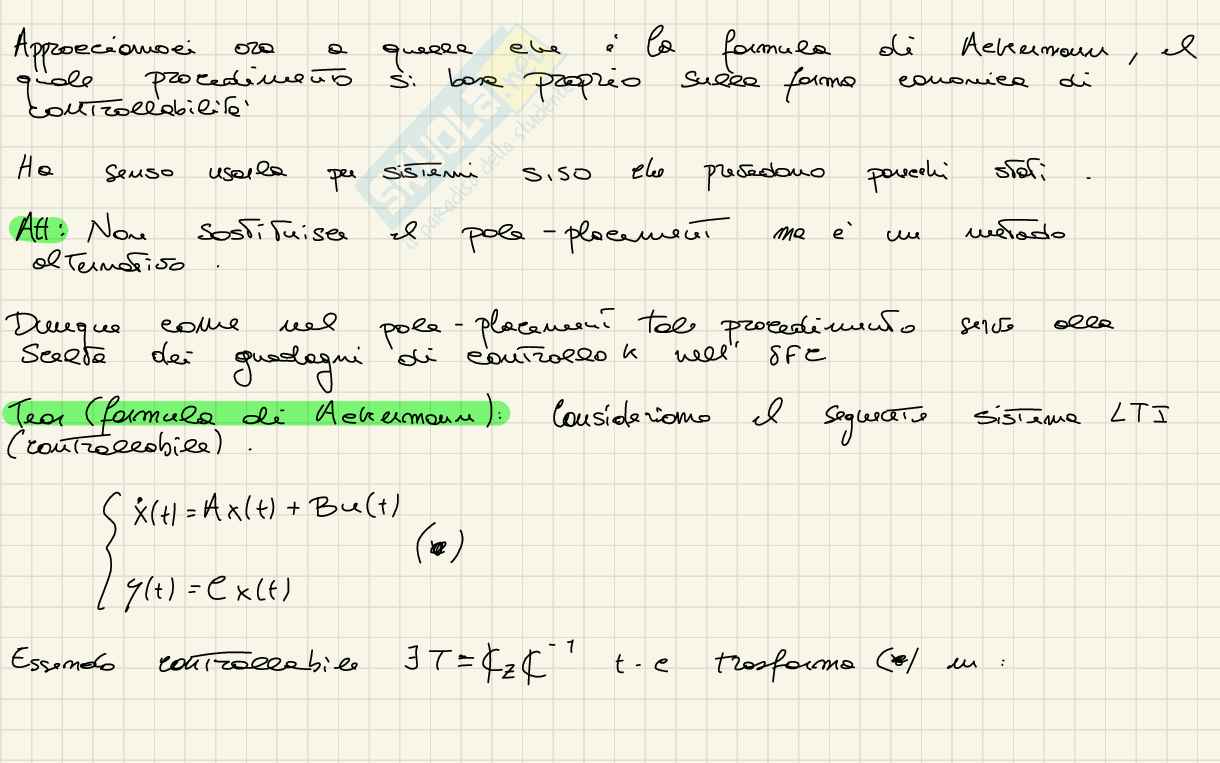 Approcciamoci ora a quella che è la formula di Ackermann, il
quale procedimento si basa proprio sulla forma canonica di
controllabilità
Ha senso usarla per sistemi SISO che prevedono parecchi stati.
Att: Non sostituisce il pole-placement ma è un metodo
alternativo.
Dunque come nel pole-placement tale procedimento serve alla
scelta dei guadagni di controllo K nell' SFC
Teor (formula di Ackermann): Consideriamo il seguente sistema LTI
(controllabile).
ẋ(t) = Ax(t) + Bu(t)
(*)
y(t) = Cx(t)
Essendo controllabile ∃ T = ₵z ₵⁻¹ t.c trasforma (*) in:
SKUOLA.net
il paradiso dello studente